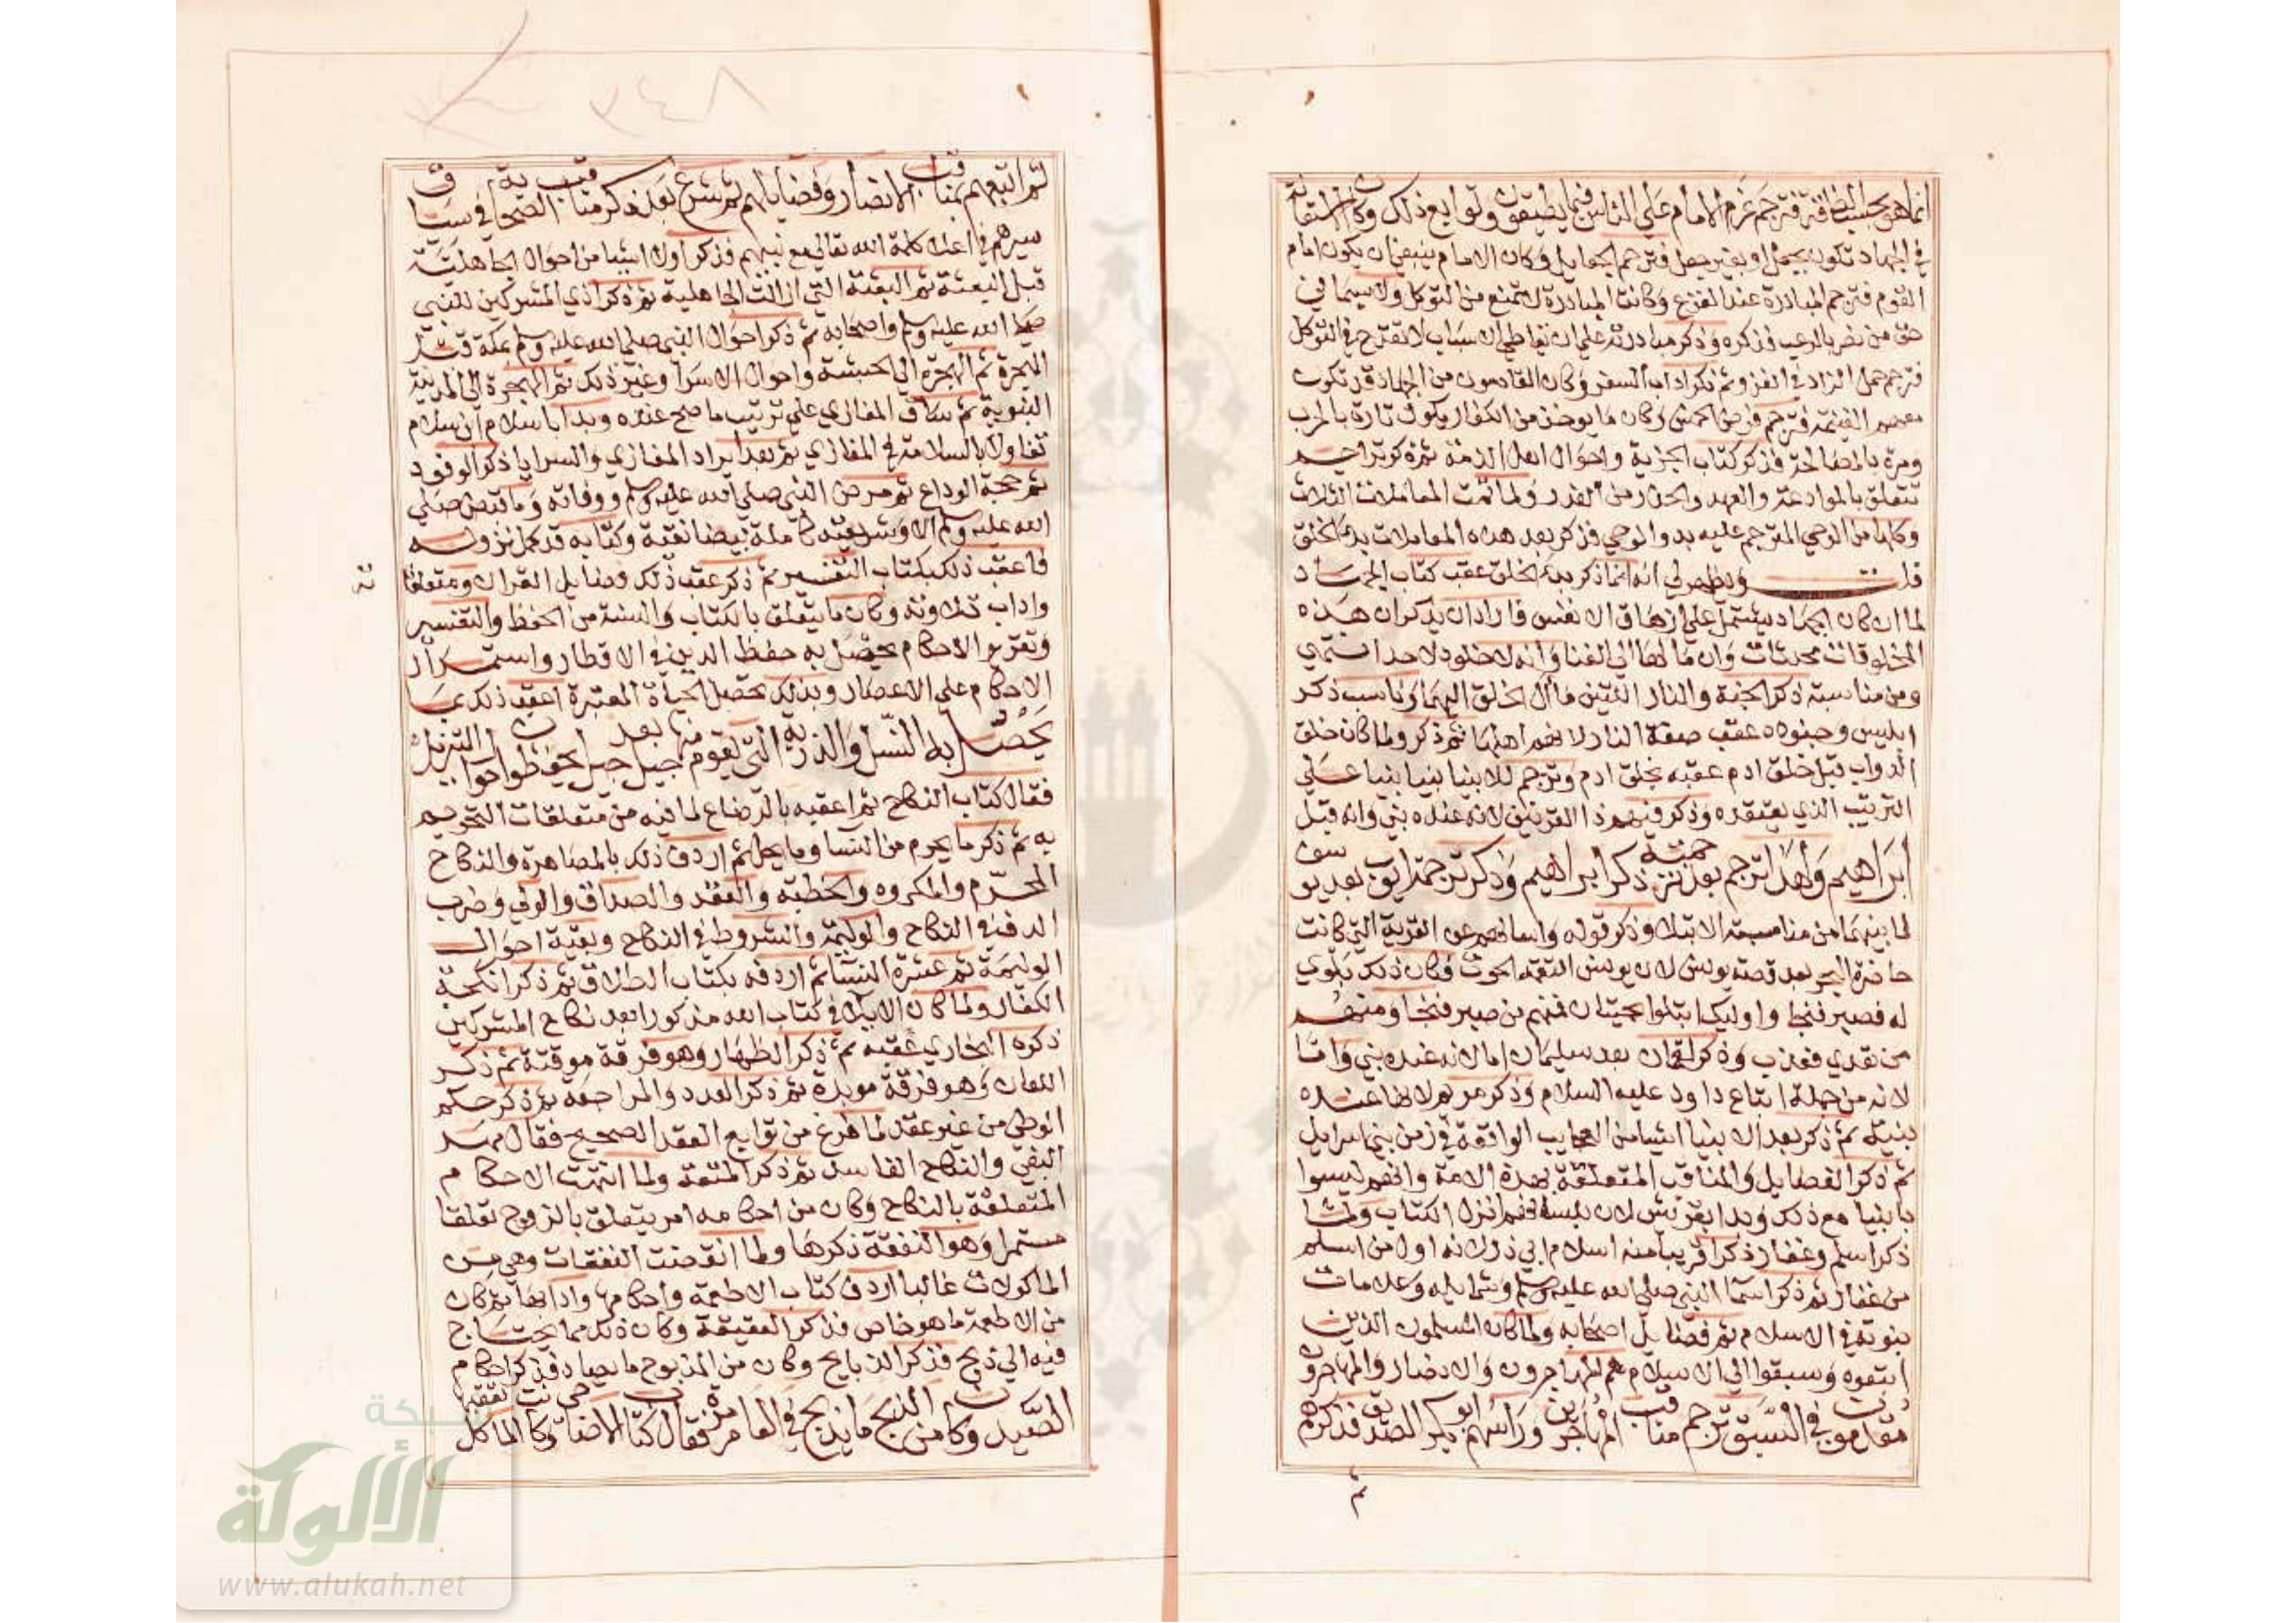 انما هو بحسب الطاقة فترجم عزم الامام علي الناس فيما يطيقون وتوابع ذلك وكانت الاستعانة
في الجهاد تكون بجعل او بغير جعل فترجم الجعايل وكان الامام ينبغي ان يكون امام
القوم فترجم المبادرة عند الفزع وكانت المبادرة لا تمنع من التوكل ولا سيما في
حق من نصر بالرعب فذكره وذكر مبادرته علي ان تعاطي الاسباب لا تقدح في التوكل
فترجم حمل الزاد في الغزو ثم ذكر اداب السفر وكان القادمون من الجهاد قد تكون
معهم الغنيمة فترجم فرض الخمس وكان ما يوخذ من الكفار يكون تارة بالحرب
ومرة بالمصالحة فذكر كتاب الجزية واحوال اهل الذمة ثم ذكر تراجيم
تتعلق بالموادعة والعهد والحذر من الغدر ولما تمت المعاملات الثلاث
وكلها من الوحي المترجم عليه بدو الوحي فذكر بعد هذه المعاملات بدء الخلق
قلت ويظهر لي انه انما ذكر بدء الخلق عقب كتاب الجهاد
لما ان كان الجهاد يشتمل علي ازهاق الانفس فاراد ان يذكر ان هذه
المخلوقات محدثات وان مالها الي الفنا وانه لا خلود لاحد انتهي
ومن مناسبته ذكر الجنة والنار اللتين مال الخلق اليهما وناسب ذكر
ابليس وجنوده عقب صفة النار لانهم اهلها ثم ذكر ولما كان خلق
الدواب قبل خلق ادم عقبه بخلق ادم وترجم للانبيا نبيا نبيا علي
الترتيب الذي يعتقده وذكر فيهم ذا القرنين لانه عنده نبي وانه قبل
ابراهيم ولهذا ترجم بعد ترجمته ذكر ابراهيم وذكر ترجمة ايوب بعد يوسف
لما بينهما من مناسبة الابتلا وذكر قوله واسالهم عن القرية التي كانت
حاضرة البحر بعد قصة يونس لان يونس التقمه الحوت وكان ذلك بلوي
له فصبر فنجا واوليك ابتلوا بحيتان فمنهم من صبر فنجا ومنهم
من تعدي فعذب وذكر لقمان بعد سليمان اما لانه عنده نبي واما
لانه من جملة اتباع داود عليه السلام وذكر مريم لانها عنده
نبية ثم ذكر بعد الانبيا اشيا من العجايب الواقعة في زمن بني اسرايل
ثم ذكر الفضايل والمناقب المتعلقة بهذه الامة وانهم ليسوا
بانبيا مع ذلك وبدا بقريش لان بلسانهم انزل الكتاب ولما
ذكر اسلم وغفار ذكر قريبا منه اسلام ابي ذر لانه اول من اسلم
من غفار ثم ذكر اسما النبي صلي الله عليه وسلم وشمايله وعلامات
نبوته في الاسلام ثم فضايل اصحابه ولما كان المسلمون الذين
اتبعوه وسبقوا الي الاسلام هم المهاجرون والانصار والمهاجرون
مقدمون في السبق ترجم مناقب المهاجرين وراسهم ابو بكر الصديق فذكرهم
ثم
ثم اتبعهم بمناقب الانصار وفضايلهم ثم شرع بعد ذكر مناقب الصحابة في سياق
سيرهم في اعلا كلمة الله تعالي مع نبيهم فذكر اولا اشيا من احوال الجاهلية
قبل البعثة ثم البعثة التي ازالت الجاهلية ثم ذكر اذي المشركين للنبي
صلي الله عليه وسلم واصحابه ثم ذكر احوال النبي صلي الله عليه وسلم بمكة قبل
الهجرة ثم الهجرة الي الحبشة واحوال الاسرا وغير ذلك ثم الهجرة الي المدينة
النبوية ثم ساق المغازي علي ترتيب ما صح عنده وبدا باسلام ابن سلام
تفاولا بالسلامة في المغازي ثم بعد ايراد المغازي والسرايا ذكر الوفود
ثم حجة الوداع ثم مرض النبي صلي الله عليه وسلم ووفاته وما قبض صلي
الله عليه وسلم الا وشريعته كاملة بيضا نقية وكتابه قد كمل نزوله
فاعقب ذلك بكتاب التفسير ثم ذكر عقب ذلك فضايل القران ومتعلقاته
واداب تلاوته وكان ما يتعلق بالكتاب والسنة من الحفظ والتفسير
وتقرير الاحكام يحصل به حفظ الدين في الاقطار واستمرار
الاحكام علي الاعصار وبذلك تحصل الحياة المعتبرة اعقب ذلك بما
يحصل به النسل والذرية التي يقوم منها جيل بعد جيل يحفظون احوال التنزيل
فقال كتاب النكاح ثم اعقبه بالرضاع لما فيه من متعلقات التحريم
به ثم ذكر ما يحرم من النسا وما يحل ثم اردف ذلك بالمصاهرة والنكاح
المحرم والمكروه والخطبة والعقد والصداق والولي وضرب
الدف في النكاح والوليمة والشروط في النكاح وبقية احوال
الوليمة ثم عشرة النسا ثم اردفه بكتاب الطلاق ثم ذكر انكحة
الكفار ولما كان الايلا في كتاب الله مذكورا بعد نكاح المشركين
ذكره البخاري عقبه ثم ذكر الظهار وهو فرقة موقتة ثم ذكر
اللعان وهو فرقة موبدة ثم ذكر العدد والمراجعة ثم ذكر حكم
الوطي من غير عقد لما فرغ من توابع العقد الصحيح فقال مهر
البغي والنكاح الفاسد ثم ذكر المتعة ولما انتهت الاحكام
المتعلقة بالنكاح وكان من احكامه امر يتعلق بالزوج تعلقا
مستمرا وهو النفقة ذكرها ولما انقضت النفقات وهي من
الماكولات غالبا اردف كتاب الاطعمة واحكامها وادابها ثم كان
من الاطعمة ما هو خاص فذكر العقيقة وكان ذلك مما يحتاج
فيه الي ذبح فذكر الذبايح وكان من المذبوح ما يصاد فذكر احكام
الصيد وكان من الذبح ما يذبح في العام مرة فقال كتاب الاضاحي وكانت الماكل
٣٤٨
شبكة
الألوكة
www.alukah.net